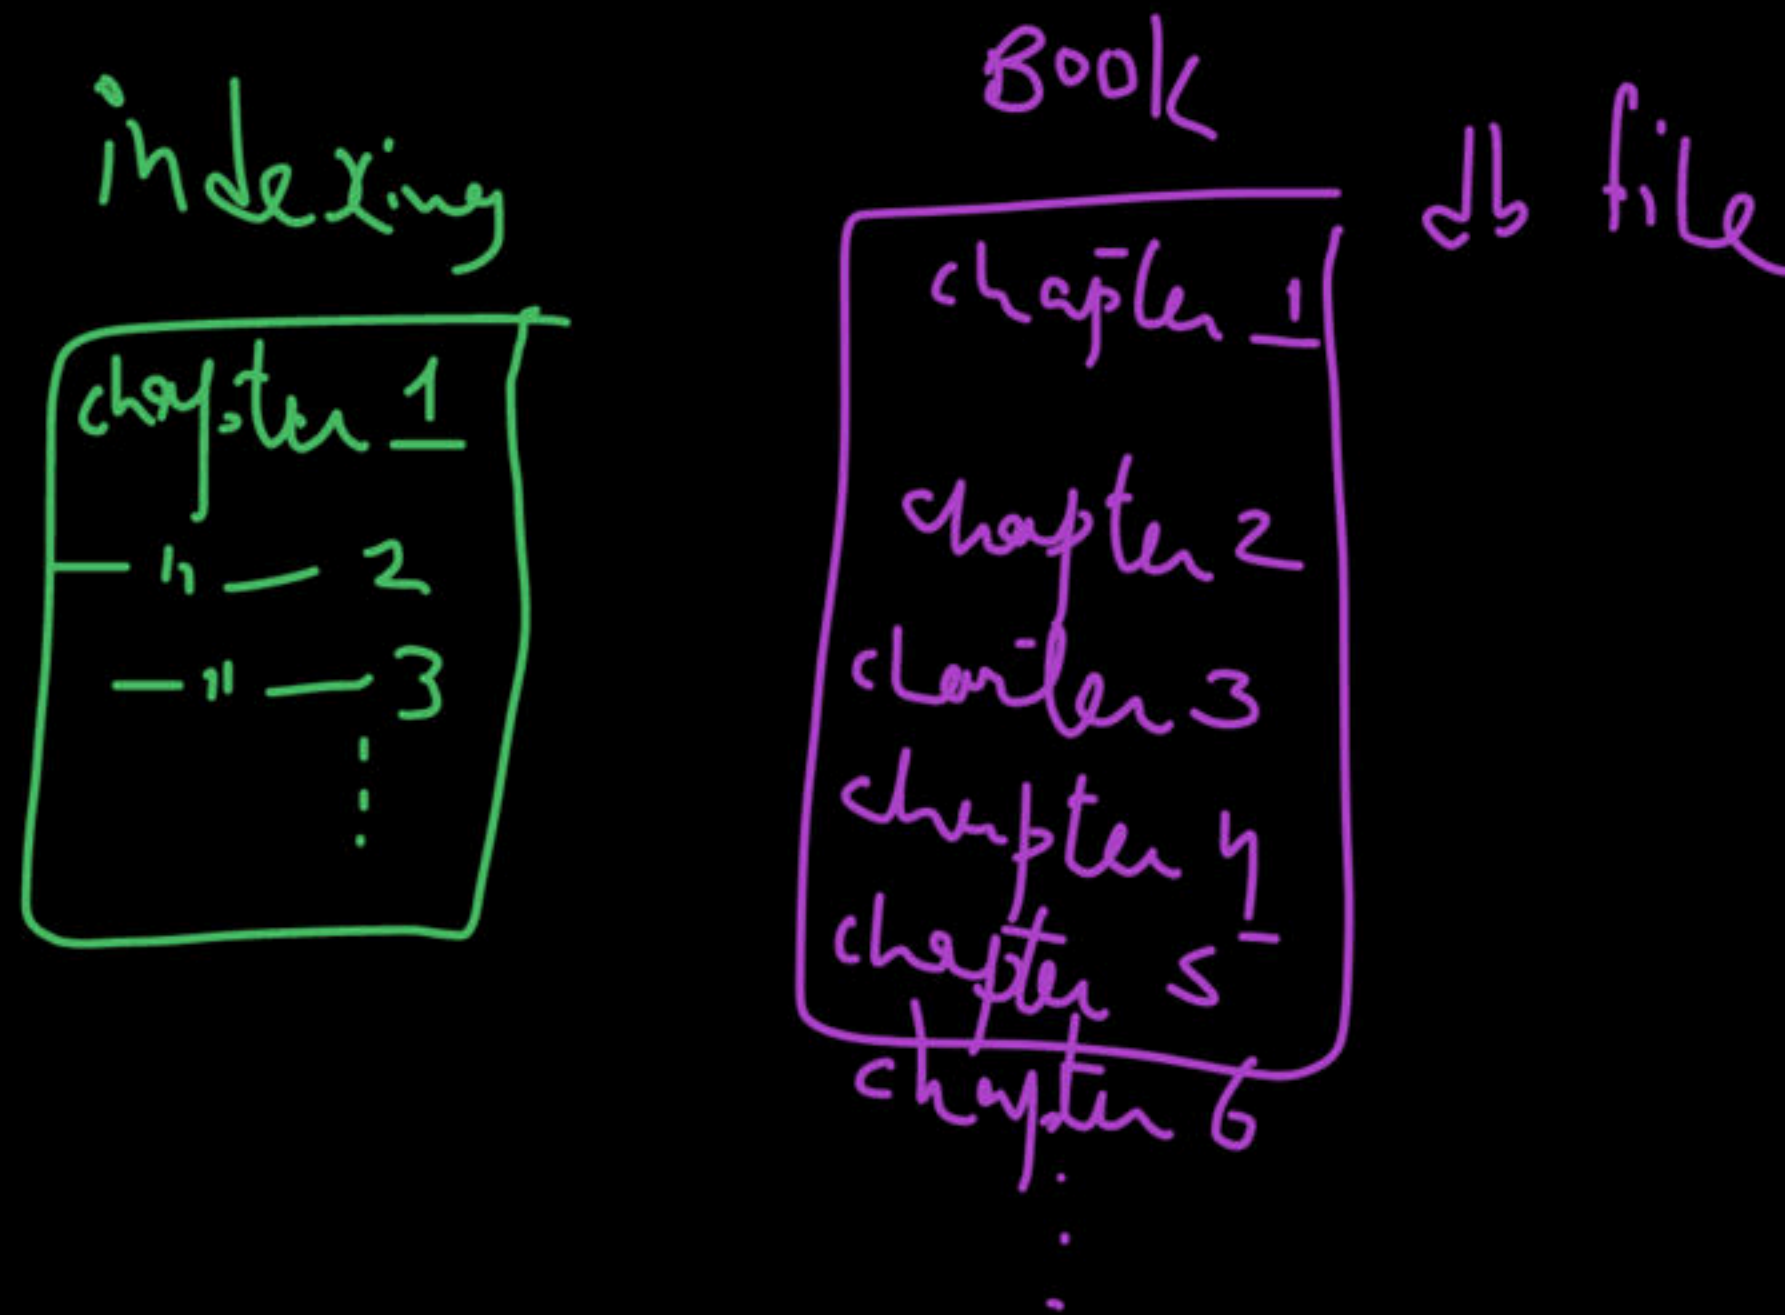 indexing
chapter 1
— " — 2
— " — 3
Book
chapter 1
chapter 2
chapter 3
chapter 4
chapter 5
chapter 6
db file